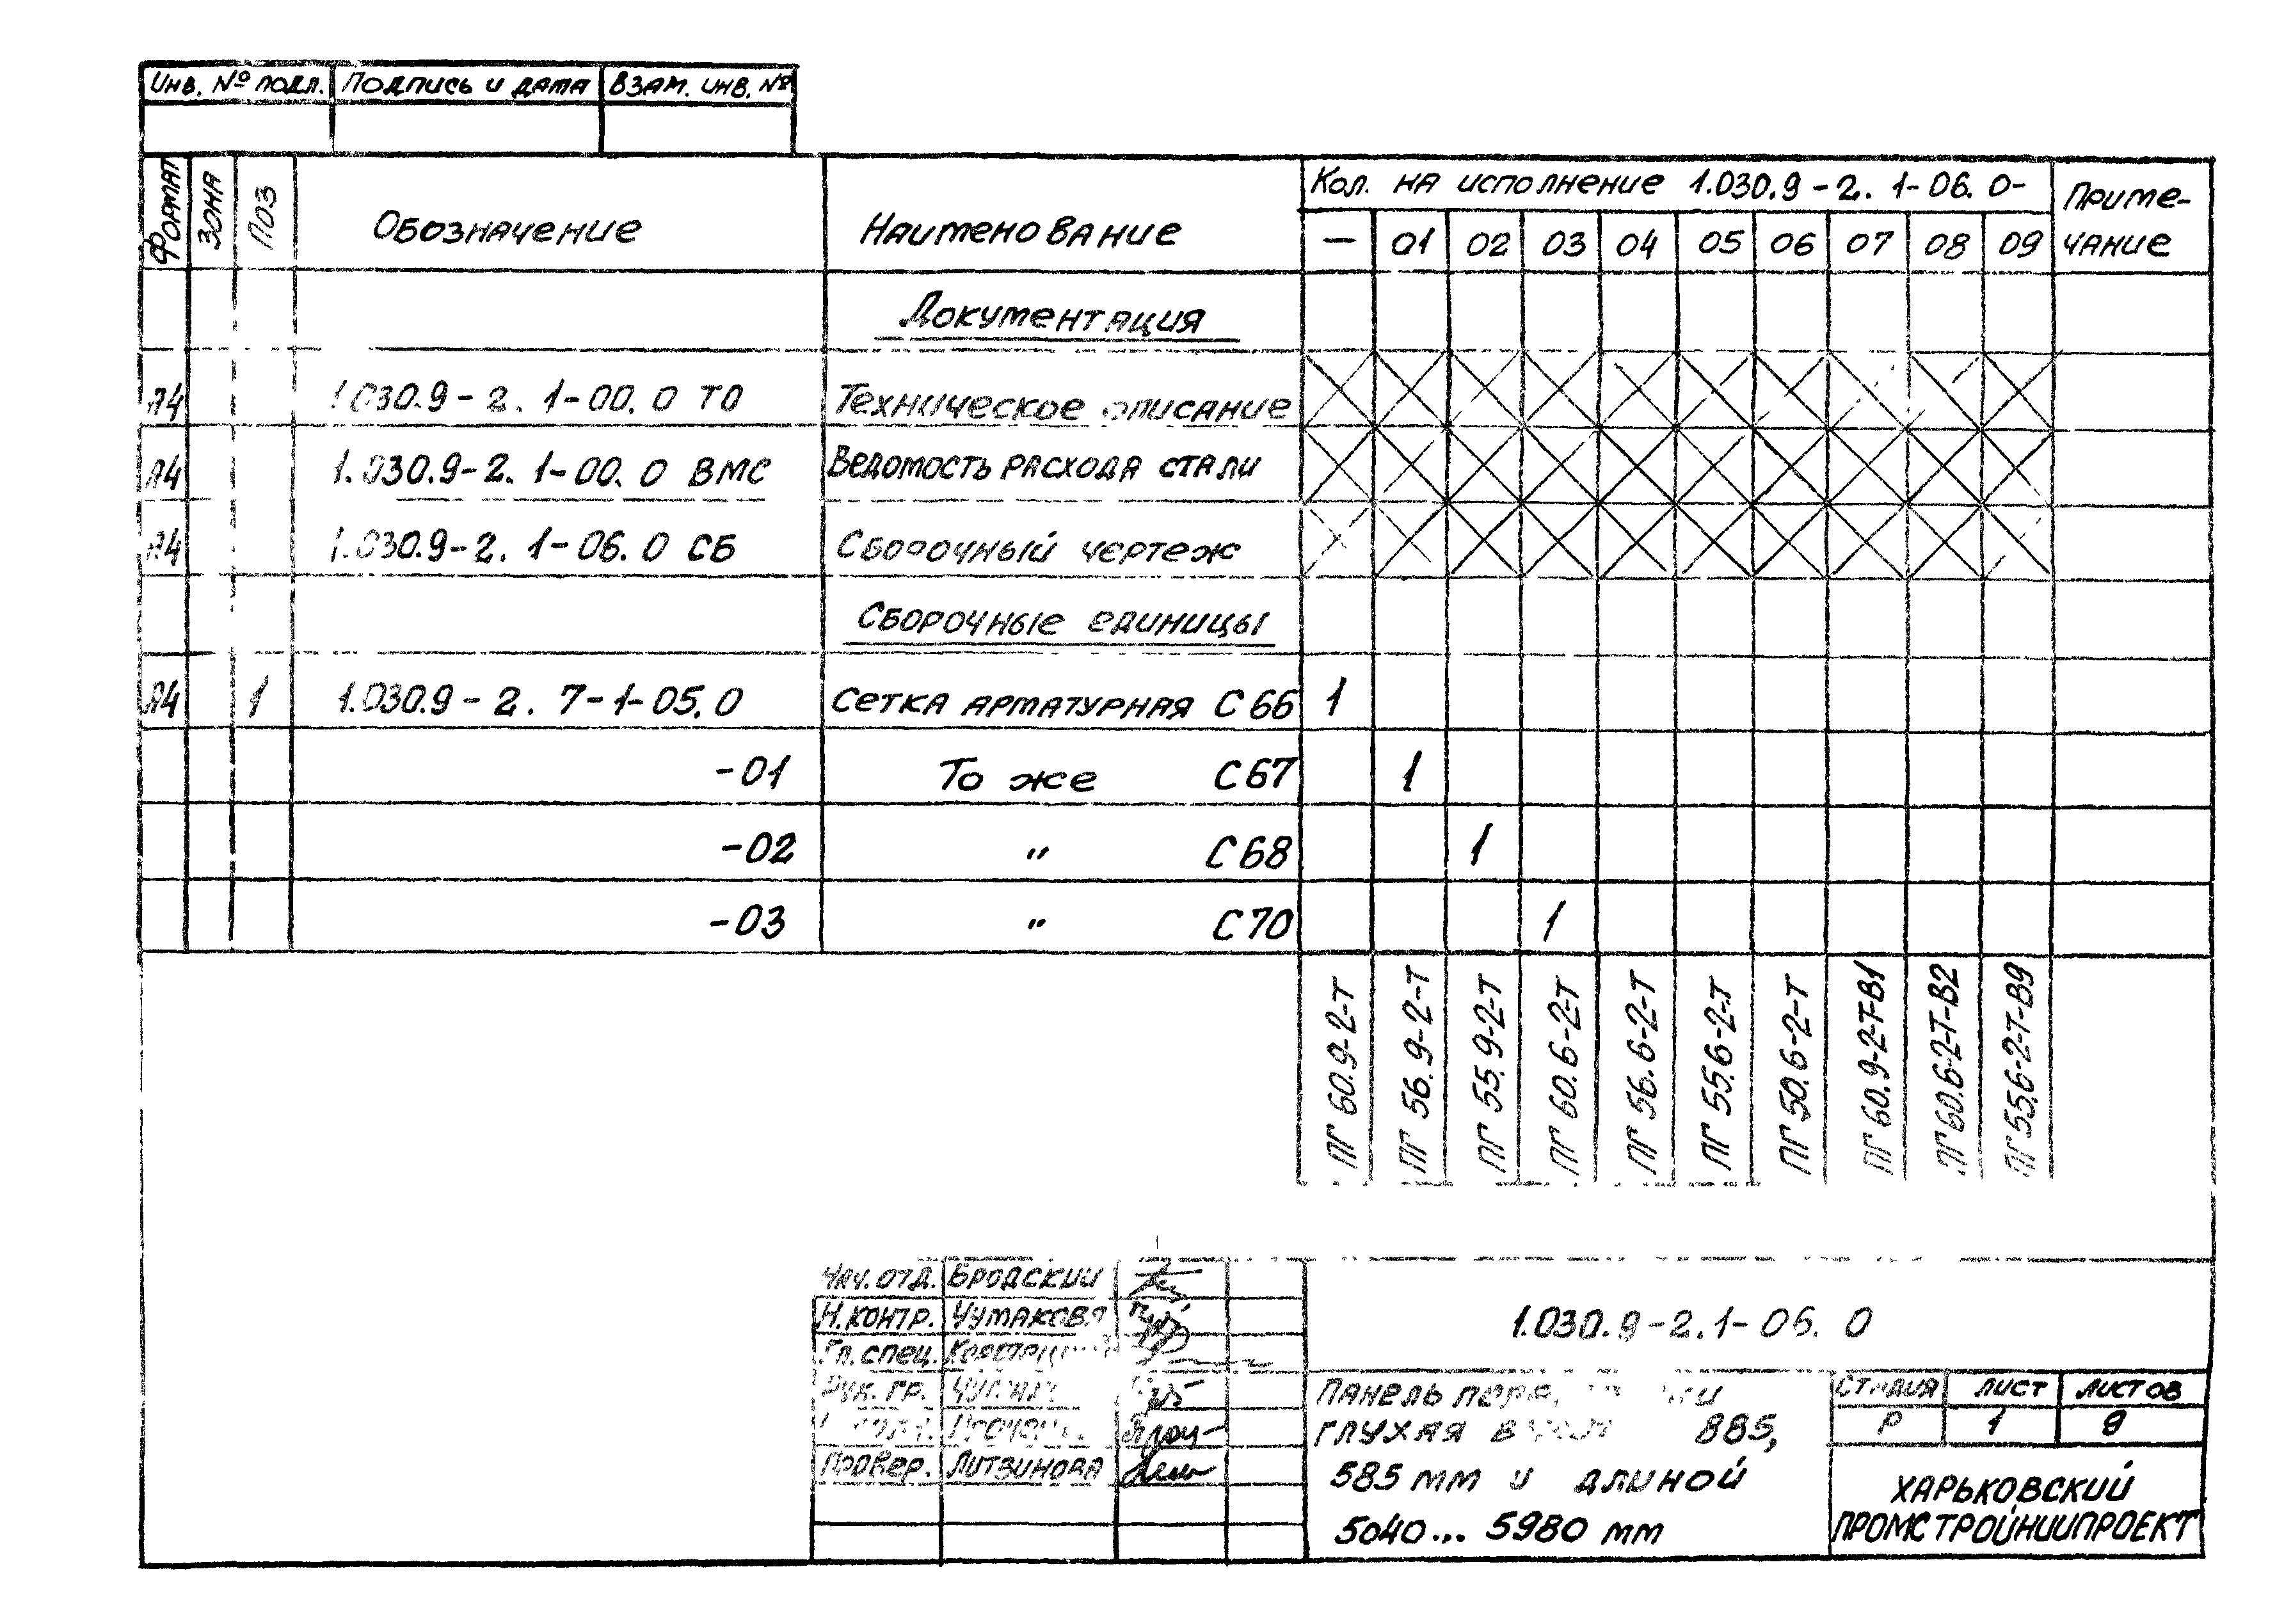 Инв. № подл. Подпись и дата Взам. инв. №
Формат Зона Поз Обозначение Наименование Кол. на исполнение 1.030.9-2. 1-06. 0- Приме-
— 01 02 03 04 05 06 07 08 09 чание
Документация
А4 1.030.9-2. 1-00. 0 ТО Техническое описание
А4 1.030.9-2. 1-00. 0 ВМС Ведомость расхода стали
А4 1.030.9-2. 1-06. 0 СБ Сборочный чертеж
Сборочные единицы
А4 1 1.030.9-2. 7-1-05. 0 Сетка арматурная С 66 1
-01 То же С 67 1
-02 " С 68 1
-03 " С 70 1
ПГ 60.9-2-Т
ПГ 56.9-2-Т
ПГ 55.9-2-Т
ПГ 60.6-2-Т
ПГ 56.6-2-Т
ПГ 55.6-2-Т
ПГ 50.6-2-Т
ПГ 60.9-2-Т-В1
ПГ 60.6-2-Т-В2
ПГ 55.6-2-Т-В9
Нач. отд. Бродский
Н. контр. Чумакова
Гл. спец.
Рук. гр.
Провер. Литвинова
1.030.9-2.1-06. 0
Панель
глухая 885,
585 мм и длиной
5040... 5980 мм
Стадия Лист Листов
Р 1 9
Харьковский
Промстройниипроект